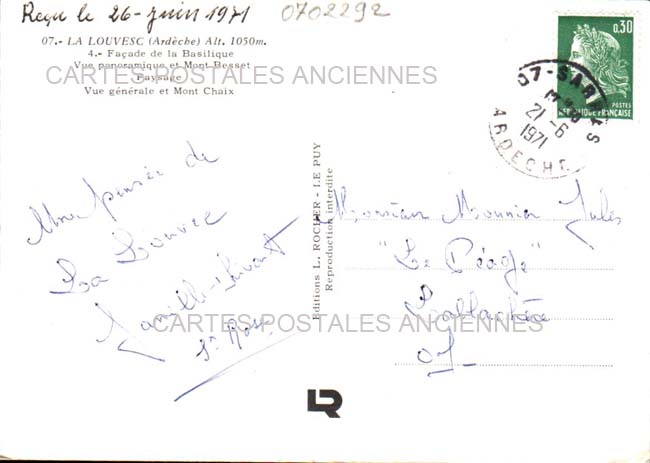 Reçu le 26-Juin 1971
0702292
07.- LA LOUVESC (Ardèche) Alt. 1050m.
4.- Façade de la Basilique
Vue panoramique et Mont Besset
Paysage
Vue générale et Mont Chaix
CARTES POSTALES ANCIENNES
0,30
POSTES
RÉPUBLIQUE FRANÇAISE
07-SARRAS
21-6
1971
ARDECHE
Une pensée de
La Louvesc
Famille
Editions L. ROCHER - LE PUY
Reproduction interdite
Monsieur Monnier Jules
"Le Péage"
07
CARTES POSTALES ANCIENNES
LR